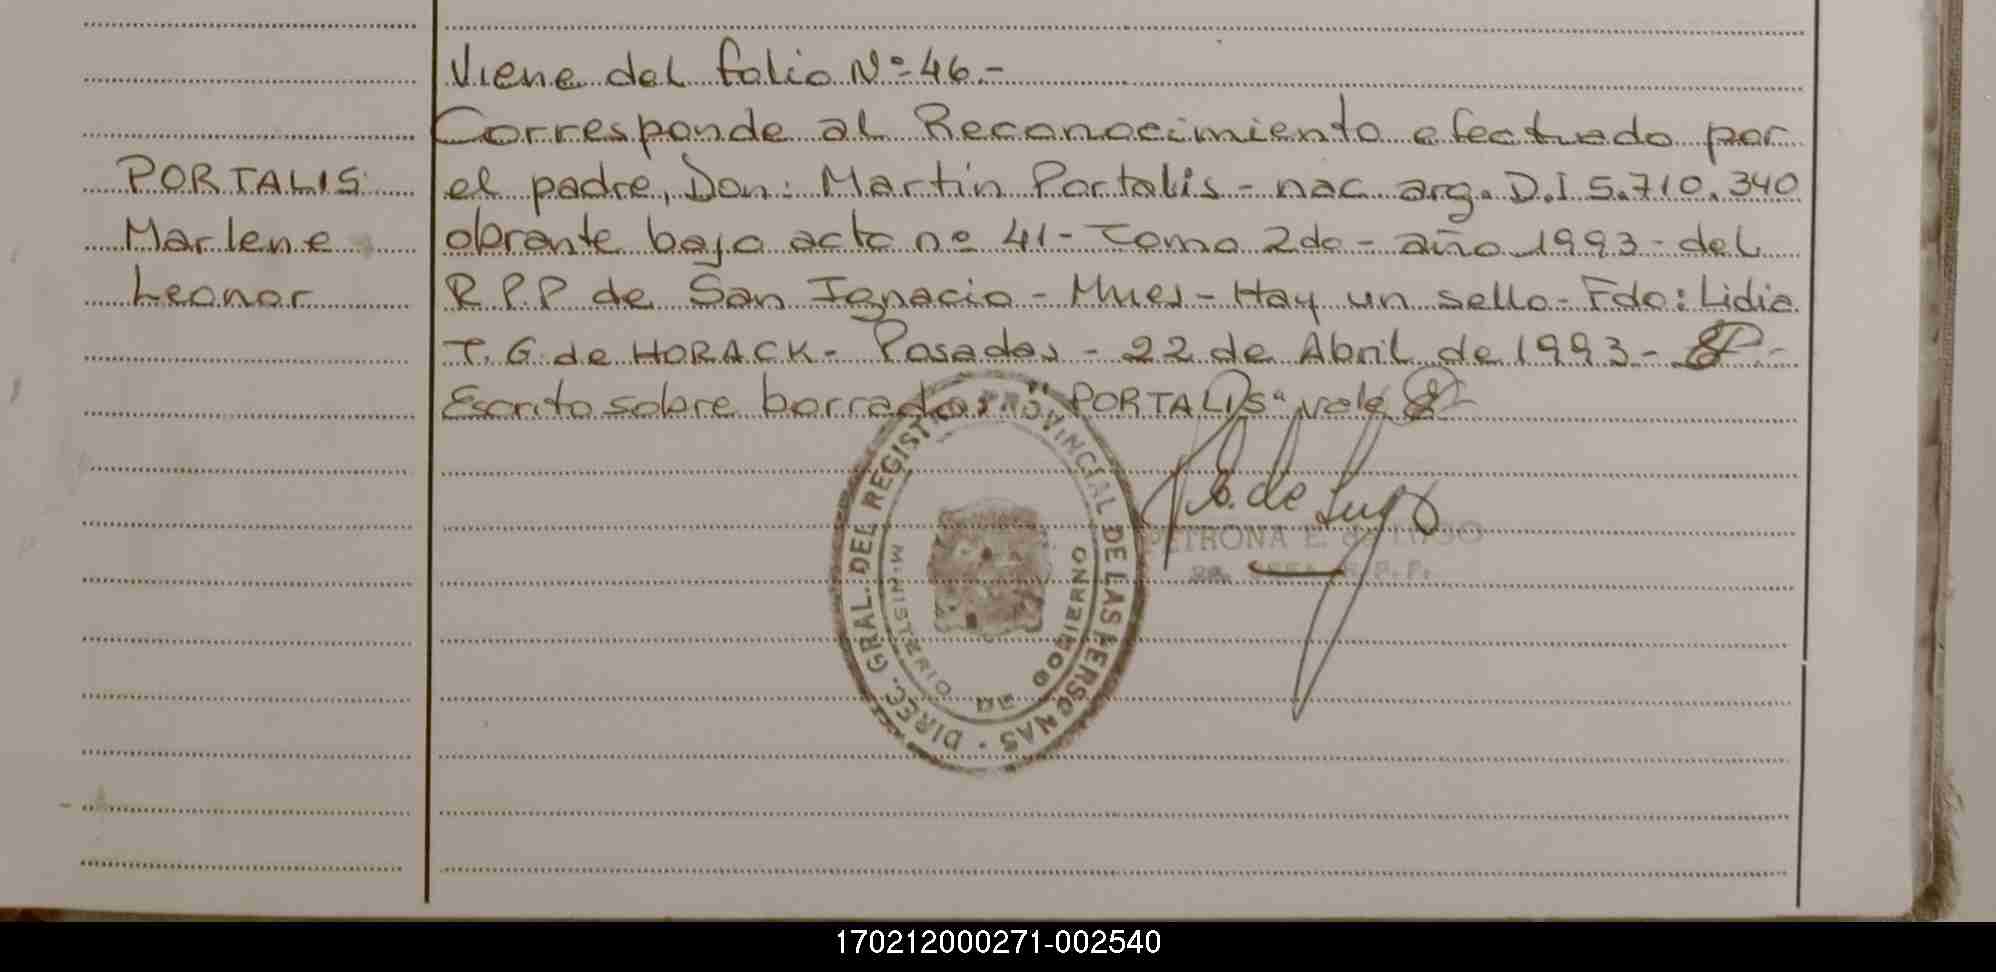 Viene del folio Nº 46.-
Corresponde al Reconocimiento efectuado por
PORTALIS
el padre, Don: Martin Portalis - nac arg. D.I 5.710.340
Marlene
obrante bajo acta nº 41 - Tomo 2do - año 1993 - del
Leonor
R.P.P de San Ignacio - Mnes - Hay un sello - Fdo: Lidia
T. G. de HORACK - Posadas - 22 de Abril de 1993 -
Escrito sobre borrado: "PORTALIS" vale
DIREC. GRAL. DEL REGISTRO PROVINCIAL DE LAS PERSONAS
MINISTERIO DE GOBIERNO
E. de Lugo
PETRONA E. de LUGO
R.P.P.
170212000271-002540